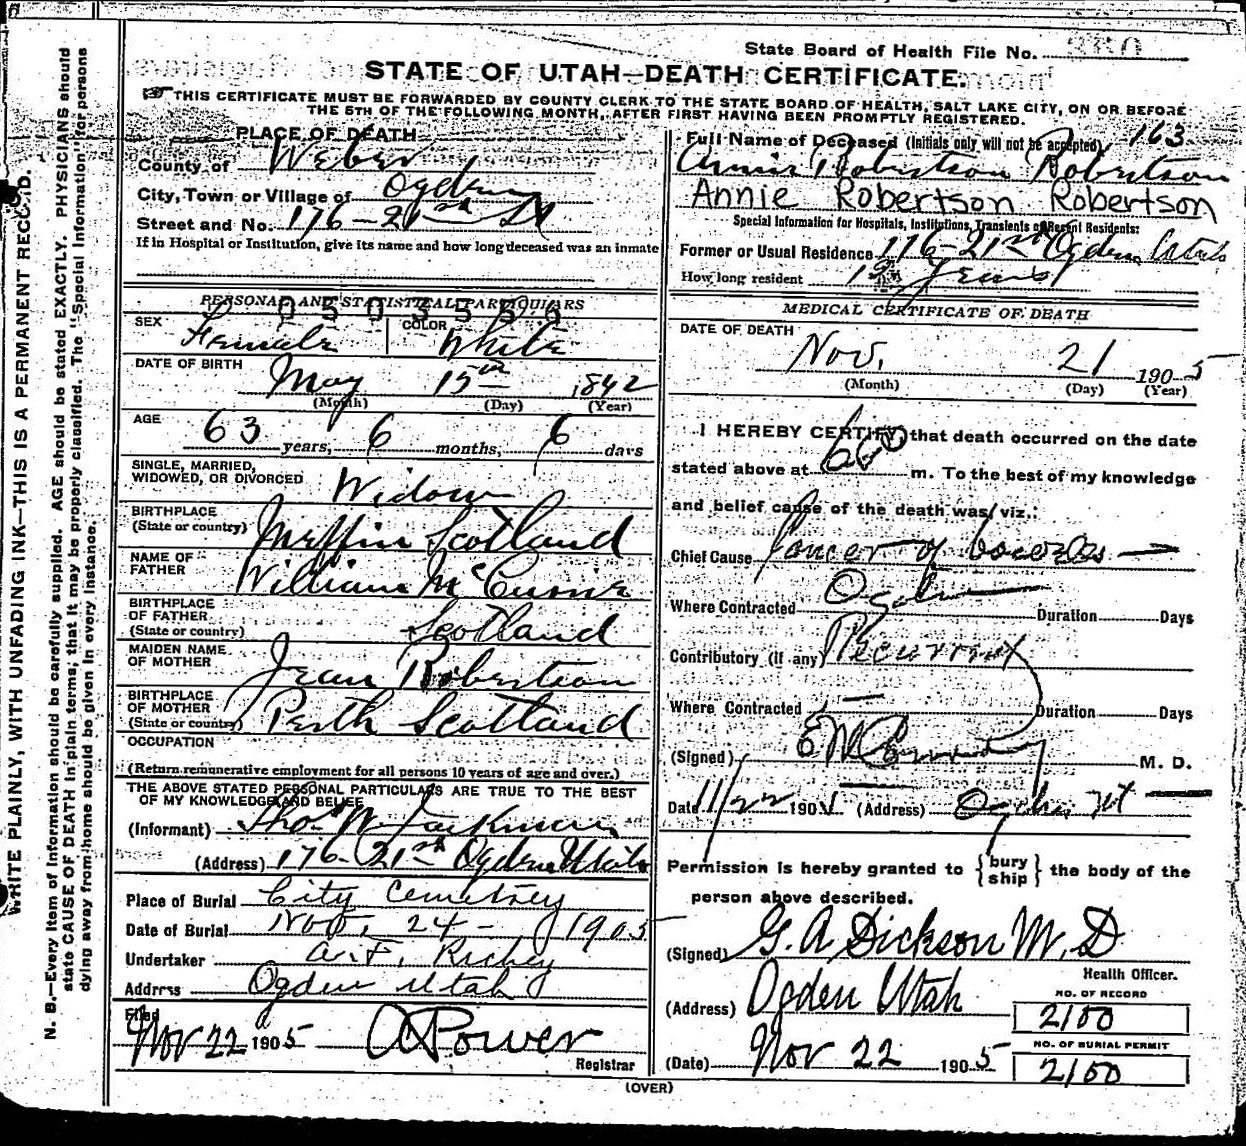 State Board of Health File No. 350
STATE OF UTAH—DEATH CERTIFICATE.
THIS CERTIFICATE MUST BE FORWARDED BY COUNTY CLERK TO THE STATE BOARD OF HEALTH, SALT LAKE CITY, ON OR BEFORE
THE 5TH OF THE FOLLOWING MONTH, AFTER FIRST HAVING BEEN PROMPTLY REGISTERED.
WRITE PLAINLY, WITH UNFADING INK—THIS IS A PERMANENT RECORD.
N. B.—Every item of information should be carefully supplied. AGE should be stated EXACTLY. PHYSICIANS should
state CAUSE OF DEATH in plain terms, that it may be properly classified. The "Special Information" for persons
dying away from home should be given in every instance.
PLACE OF DEATH
County of Weber
City, Town or Village of Ogden
Street and No. 176-21st St
If in Hospital or Institution, give its name and how long deceased was an inmate
PERSONAL AND STATISTICAL PARTICULARS
0503556
SEX Female COLOR White
DATE OF BIRTH May 15th 1842
(Month) (Day) (Year)
AGE 63 years, 6 months, 6 days
SINGLE, MARRIED,
WIDOWED, OR DIVORCED Widow
BIRTHPLACE
(State or country) Scotland
NAME OF
FATHER William
BIRTHPLACE
OF FATHER
(State or country) Scotland
MAIDEN NAME
OF MOTHER Jean Robertson
BIRTHPLACE
OF MOTHER
(State or country) Perth Scotland
OCCUPATION
(Return remunerative employment for all persons 10 years of age and over.)
THE ABOVE STATED PERSONAL PARTICULARS ARE TRUE TO THE BEST
OF MY KNOWLEDGE AND BELIEF
(Informant) Thos W
(Address) 176-21st Ogden Utah
Place of Burial City Cemetrey
Date of Burial Nov. 24- 1905
Undertaker A. F. Richey
Address Ogden Utah
Filed
Nov 22 1905 Power
Registrar
Full Name of Deceased (Initials only will not be accepted) 163
Annie Robertson Robertson
Annie Robertson Robertson
Special Information for Hospitals, Institutions, Transients or Recent Residents:
Former or Usual Residence 176-21st Ogden Utah
How long resident Years
MEDICAL CERTIFICATE OF DEATH
DATE OF DEATH
Nov. 21 1905
(Month) (Day) (Year)
I HEREBY CERTIFY that death occurred on the date
stated above at m. To the best of my knowledge
and belief cause of the death was, viz.:
Chief Cause Cancer of bowels
Where Contracted Ogden Duration Days
Contributory (if any) Recurrent
Where Contracted Duration Days
(Signed) M. D.
Date 11/22 190 (Address) Ogden Ut
Permission is hereby granted to {bury ship} the body of the
person above described.
(Signed) G. A Dickson M. D
Health Officer.
(Address) Ogden Utah
NO. OF RECORD
2100
(Date) Nov 22 1905
NO. OF BURIAL PERMIT
2100
(OVER)